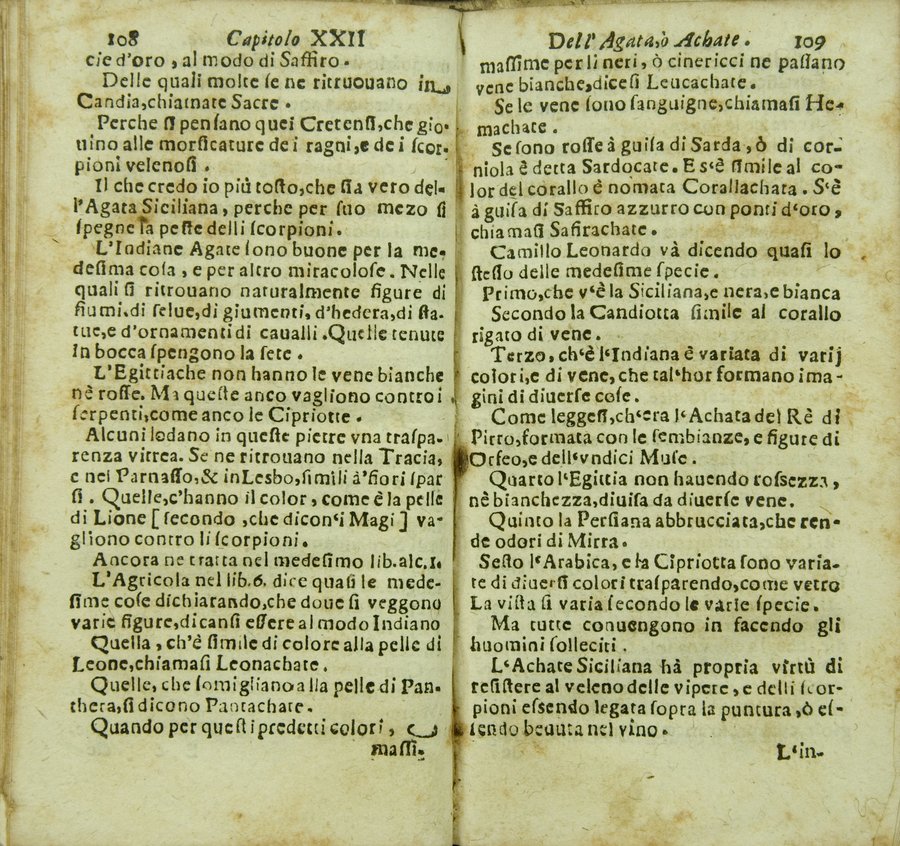 108 Capitolo XXII
cie d'oro , al modo di Saffiro.
Delle quali molte ſe ne ritruouano in
Candia,chiamate Sacre .
Perche ſi penſano quei Cretenſi,che gio-
uino alle morſicature de i ragni,e de i ſcor-
pioni velenoſi .
Il che credo io più toſto,che ſia vero del-
l'Agata Siciliana , perche per ſuo mezo ſi
ſpegne la peſte delli ſcorpioni .
L'Indiane Agate ſono buone per la me-
deſima coſa , e per altro miracoloſe . Nelle
quali ſi ritrouano naturalmente figure di
fiumi,di ſelue,di giumenti, d'hedera,di ſta-
tue,e d'ornamenti di caualli .Quelle tenute
In bocca ſpengono la ſete .
L'Egittiache non hanno le vene bianche
nè roſſe. Ma queſte anco vagliono contro i
ſerpenti,come anco le Cipriotte .
Alcuni lodano in queſte pietre vna traſpa-
renza vitrea. Se ne ritrouano nella Tracia,
e nel Parnaſſo,& in Lesbo,ſimili à'fiori ſpar
ſi . Quelle,c'hanno il color , come è la pelle
di Lione [ ſecondo ,che dicon'i Magi ] va-
gliono contro li ſcorpioni.
Ancora ne tratta nel medeſimo lib.alc.1.
L'Agricola nel lib.6. dice quaſi le mede-
ſime coſe dichiarando,che doue ſi veggono
varie figure,dicanſi eſſere al modo Indiano
Quella , ch'è ſimile di colore alla pelle di
Leone,chiamaſi Leonachate .
Quelle, che ſomigliano alla pelle di Pan-
thera,ſi dicono Pantachate .
Quando per queſti predetti colori ,
maſſi-
Dell' Agata,ò Achate . 109
maſſime per li neri , ò cinericci ne paſſano
vene bianche,diceſi Leucachate .
Se le vene ſono ſanguigne,chiamaſi He-
machate .
Se ſono roſſe à guiſa di Sarda , ò di cor-
niola è detta Sardocate . E s'è ſimile al co-
lor del corallo è nomata Corallachata . S'è
à guiſa di Saffiro azzurro con ponti d'oro ,
chiamaſi Safirachate .
Camillo Leonardo và dicendo quaſi lo
ſteſſo delle medeſime ſpecie .
Primo,che v'è la Siciliana,e nera,e bianca
Secondo la Candiotta ſimile al corallo
rigato di vene .
Terzo, ch'è l'Indiana è variata di varij
colori,e di vene, che tal'hor formano ima-
gini di diuerſe coſe .
Come leggeſi,ch'era l'Achata del Rè di
Pirro,formata con le ſembianze, e figure di
Orfeo,e dell'vndici Muſe .
Quarto l'Egittia non hauendo roſſezza ,
nè bianchezza,diuiſa da diuerſe vene .
Quinto la Perſiana abbrucciata,che ren-
de odori di Mirra .
Seſto l'Arabica, e la Cipriotta ſono varia-
te di diuerſi colori traſparendo,come vetro
La viſta ſi varia ſecondo le varie ſpecie .
Ma tutte conuengono in facendo gli
huomini ſolleciti .
L'Achate Siciliana hà propria virtù di
reſiſtere al veleno delle vipere , e delli ſcor-
pioni eſſendo legata ſopra la puntura ,ò eſ-
ſendo beuuta nel vino .
L'in-